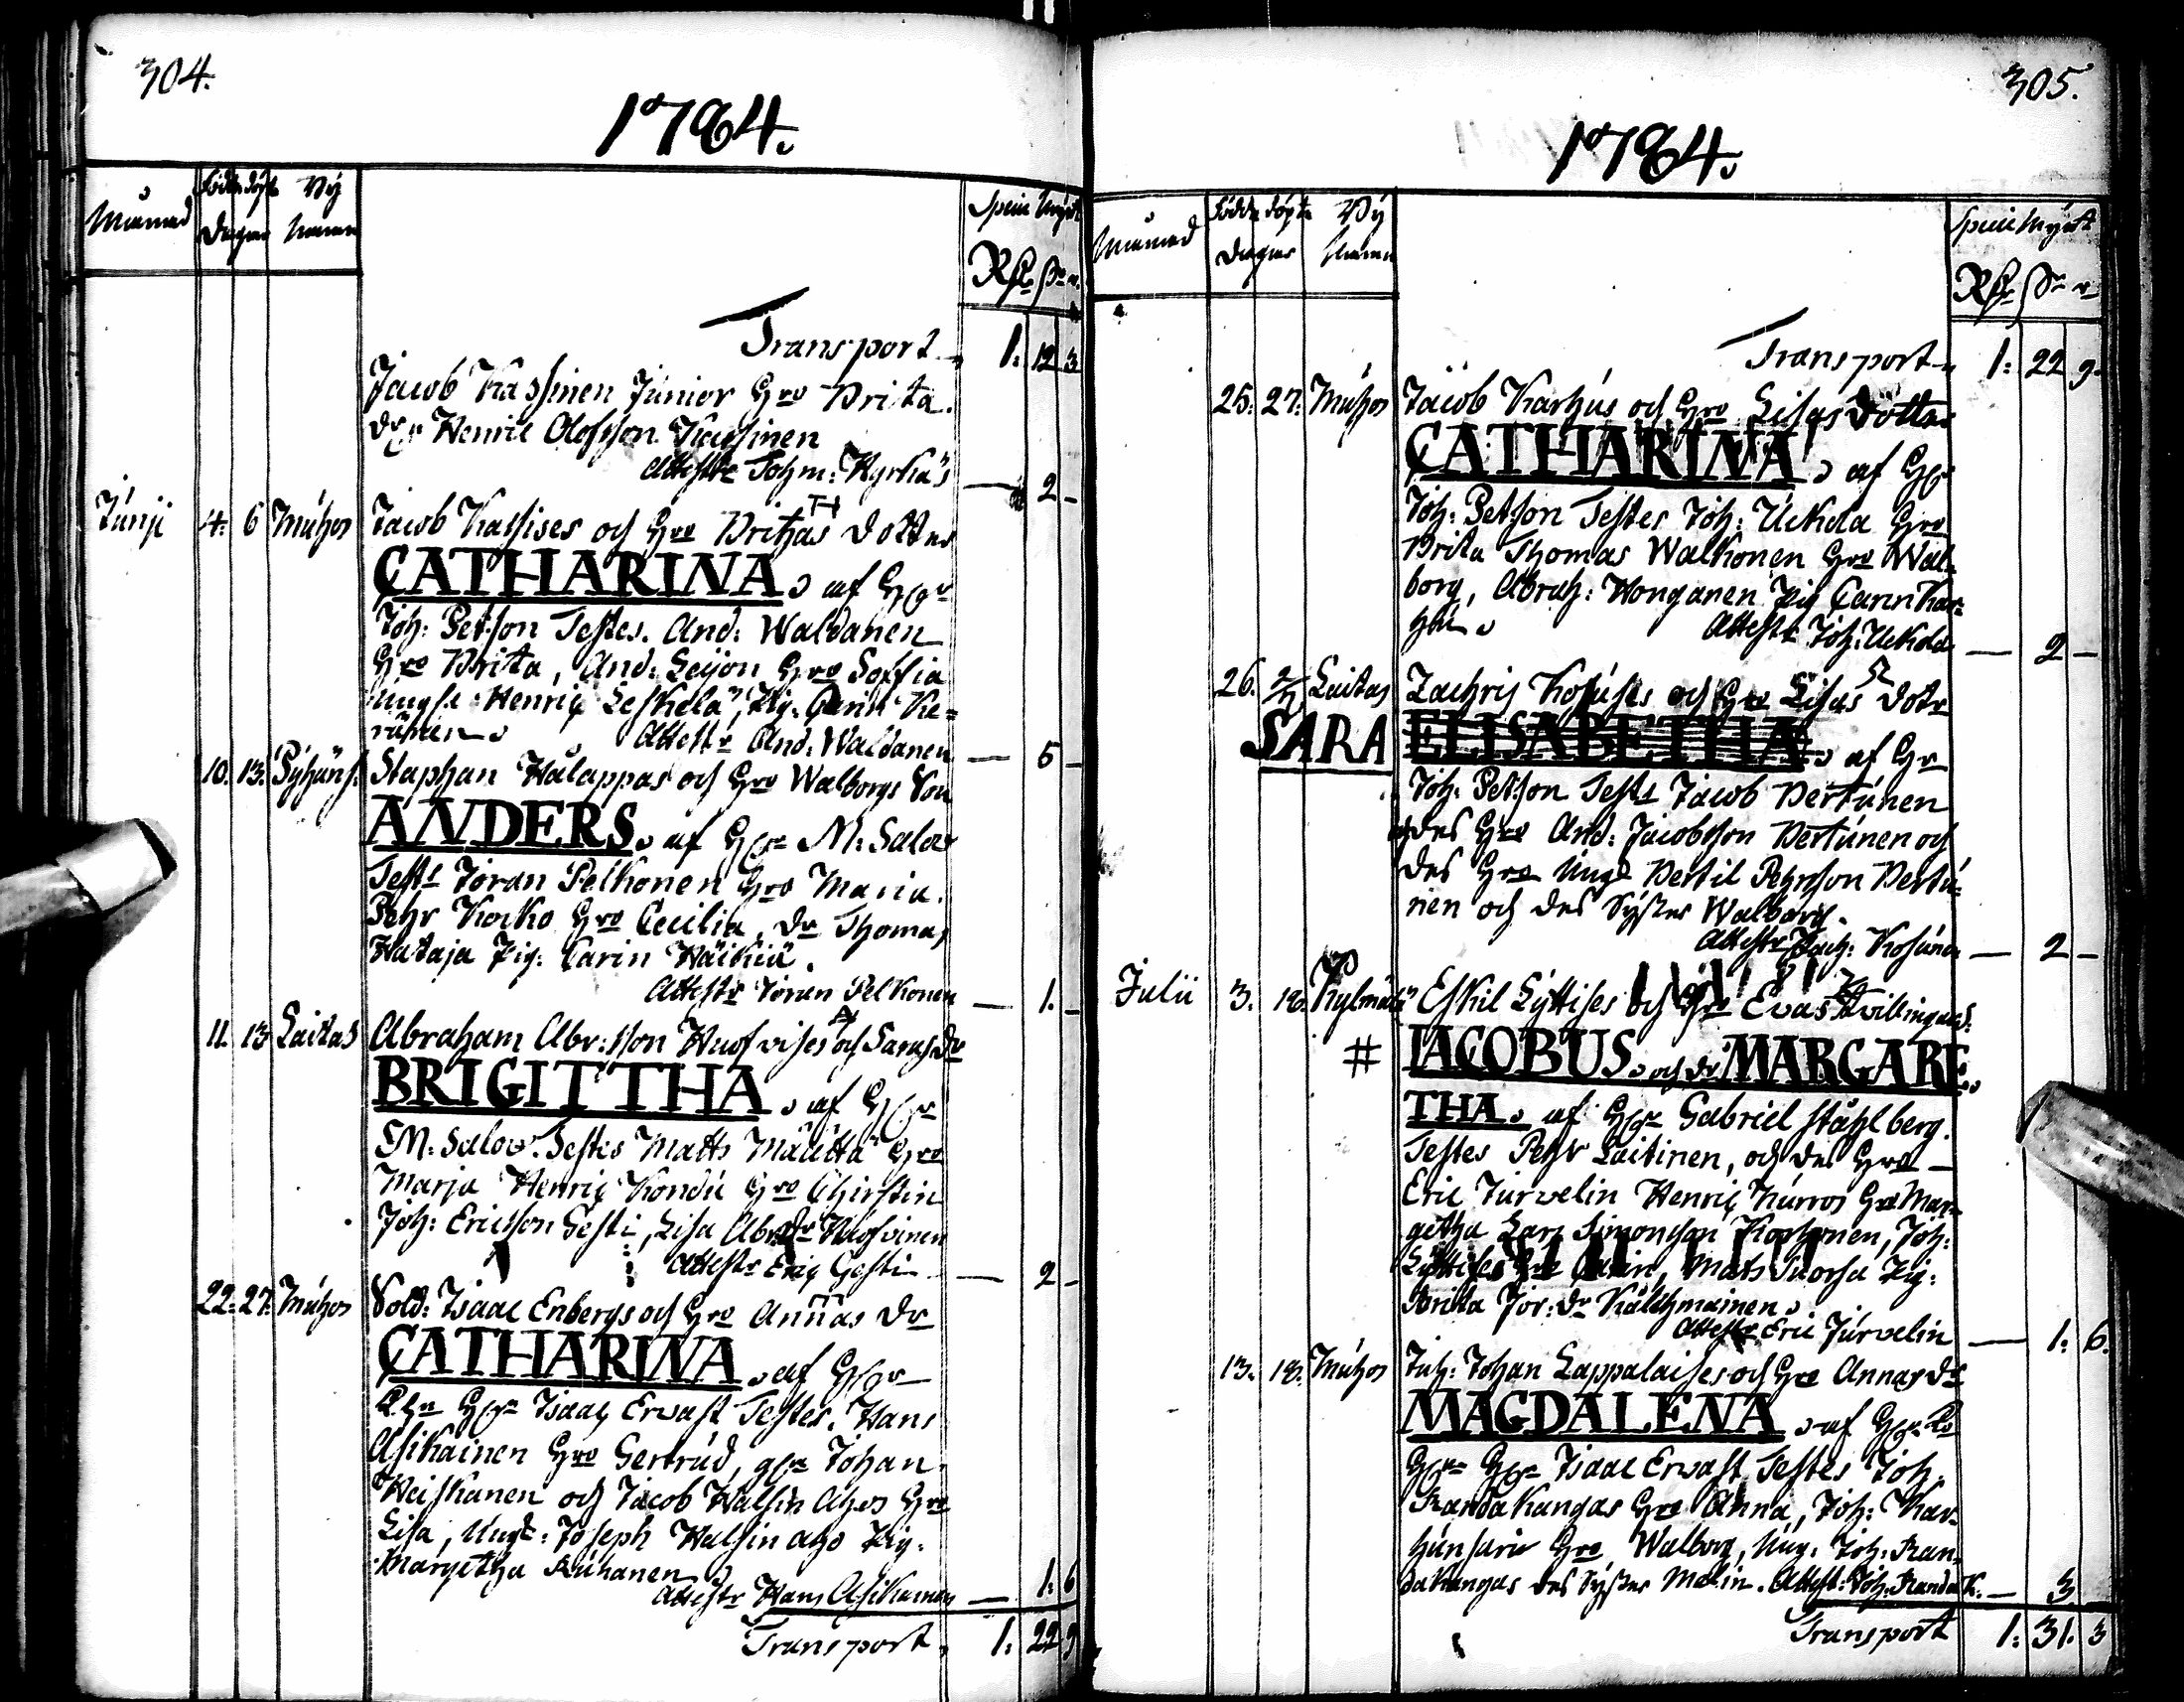 304.
1784.
Månad Födde döpte By
Dagar Namn
Speciemynt
Rdr ßr r.
Transport 1: 12 3
Jacob Kassinen Junior Hro Brita.
dr Henric Olofsson Kassinen
Attestr Johm: Kyrkäs — 2 -
Junji 4. 6 Muhos Jacob Kassises och Hro Brithas dotter
CATHARINA. af Hr
Joh: Petson Testes. And: Waldanen
Hro Brita, And: Leijon Hro Soffia
ungk: Henric Leskelä, Pig. Carin Ke=
ränen. Attestr And: Waldanen — 5 -
10. 13. Pyhäns. Staphan Halappas och Hro Walborgs Son
ANDERS. af Hr M: Salov
Tests Joran Pelkonen Hro Maria.
Pehr Korko Hro Cecilia, Dr Thomas
Hataja Pig: Carin Häikiö.
Attestr Joran Pelkonen — 1. -
11. 13 Laitas Abraham Abr:sson Huofvises och Saras dr
BRIGITTHA. af Hr
M: Salov. Testis Matts Määttä Hro
Marja Henric Kondu Hro Chirstin
Joh: Ericsson Gesti, Lisa Abr.dr Huofvinen
Attestr Eric Gesti — 2 -
22. 27. Muhos Sold: Isaac Enbergs och Hro Annas Dr
CATHARINA. af Hr
Isaac Ervast Testes. Hans
Asikainen Hro Gertrud, Johan
Heiskanen och Jacob Walsin Ahos Hro
Lisa, Ungk: Joseph Walsin aho Pig.
Margetha Ruhanen
Attestr Hans Asikainen — 1. 6
Transport 1: 22 9
305.
1784.
Månad Födde döpte By
Dagar Namn
Specie mynt
Rdr ßr r
Transport 1: 22 9.
25. 27. Muhos Jacob Karhus och Hro Lisas Dotter
CATHARINA. af Hr
Joh: Petson Testes Joh: Uckola Hro
Brita Thomas Walkonen Hro Wal=
borg, Abrah: Honganen Pig Carin Kar=
hu. Attestr Joh: Uckola — 2 —
26. Laitas Zachris Kosuses och Hro Lisas dotr
SARA ELISABETHA. af Hr
Joh: Petson Tests Jacob Bertunen
och des Hro And: Jacobsson Bertunen och
des Hro Ungk Bertil Pehrsson Bertu=
nen och des Syster Walborg.
Attestr Zach: Kosunen — 2 -
Julii 3. 18. Kylmälä Eskil Lyttises och Hro Evas tvillingard.
# IACOBUS. och dr MARGARE.
THA. af Hr Gabriel Ståhlberg.
Testes Pehr Laitinen, och des Hro —
Eric Jurvelin Henric Kurvos Hro Mar=
getha Lars Simonsson Korhonen, Joh:
Lyttises Hro Carin, Mats Suorsa Pig:
Brita Jör: dr Kälkymäinen.
Attestr Eric Jurvelin — 1. 6.
13. 18. Muhos Inh: Johan Lappalaises och Hro Annas dr
MAGDALENA. af Hr
Isaac Ervast Testes Joh.
Randa Kangas Hro Anna, Joh: Kar=
hunsario Hro Walborg, Ung: Joh: Ran=
da Kangas des Syster Malin. Attest: Joh: Randa K. — 3
Transport 1: 31. 3